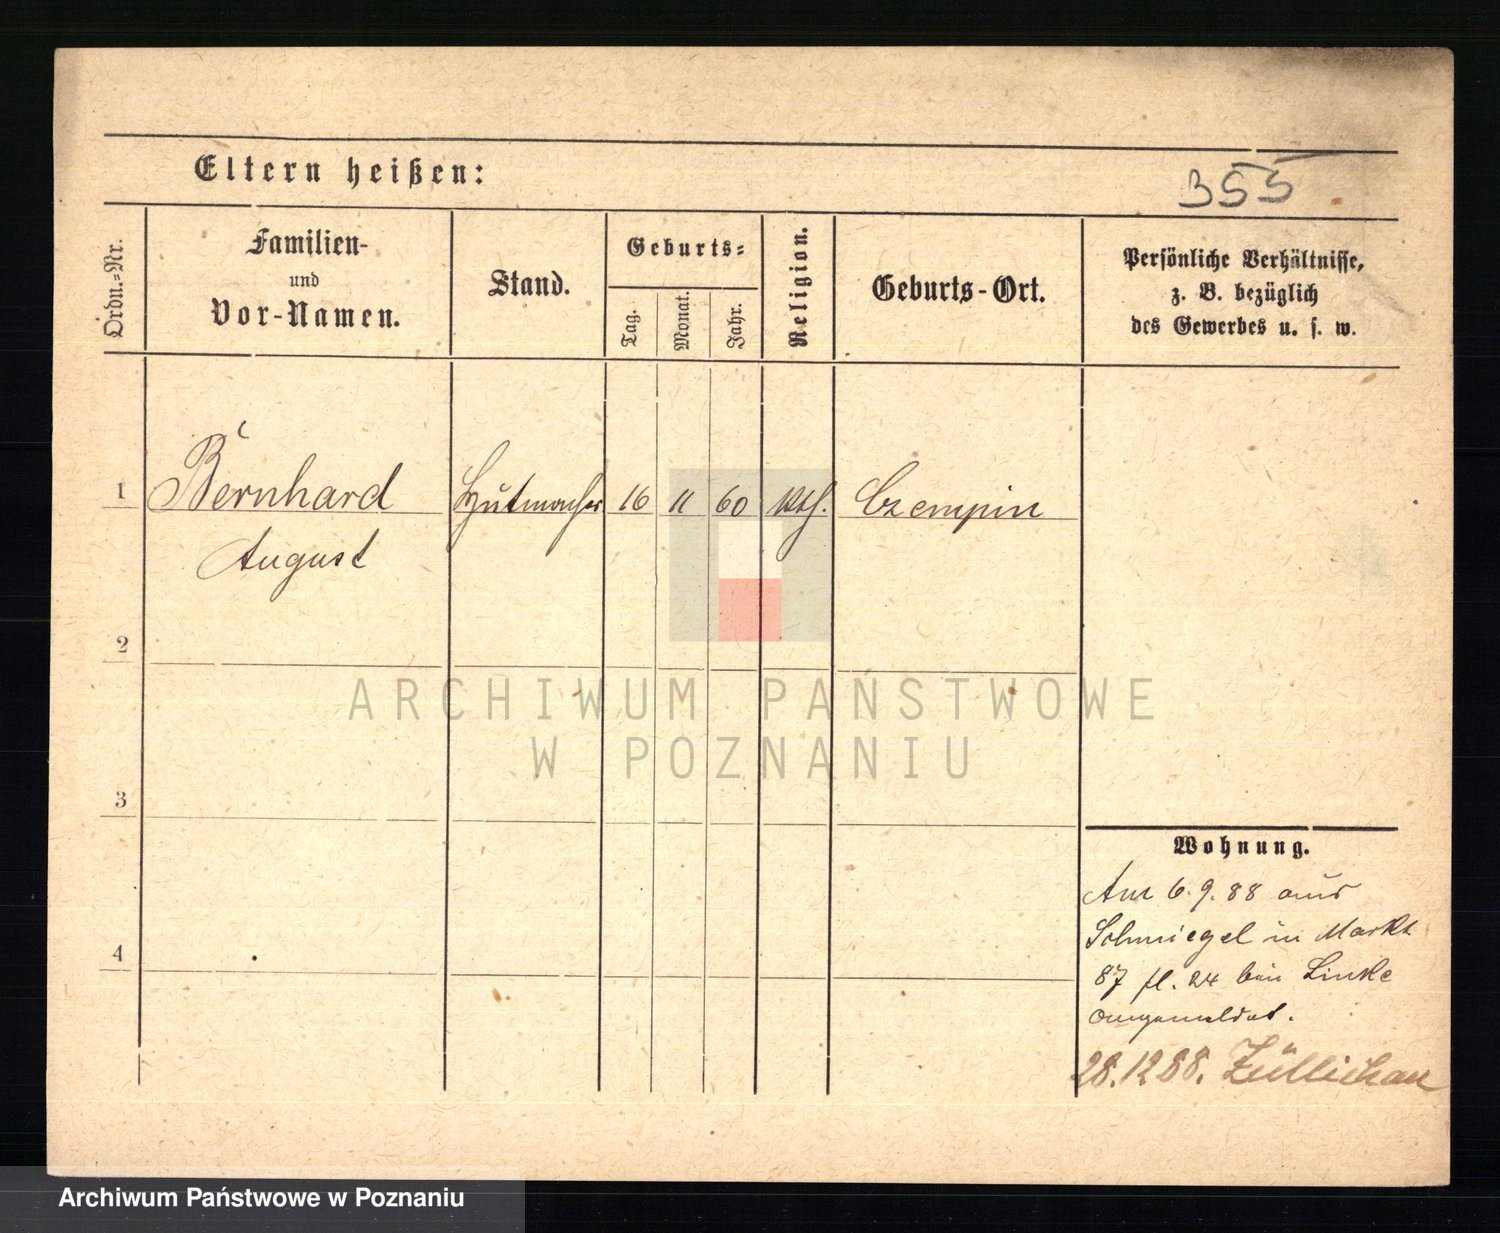 Eltern heißen:
355
Ordn.-Nr.
Familien-
und
Vor-Namen.
Stand.
Geburts-
Tag.
Monat.
Jahr.
Religion.
Geburts-Ort.
Persönliche Verhältnisse,
z. B. bezüglich
des Gewerbes u. s. w.
1 Bernhard Hutmacher 16 11 60 kth. Czempin
August
2
ARCHIWUM PAŃSTWOWE
W POZNANIU
3
Wohnung.
Am 6.9.88 aus
Schmiegel in Markt
87 fl. 24 bei Linke
angemeldet.
4
28.12.88. Züllichau
Archiwum Państwowe w Poznaniu